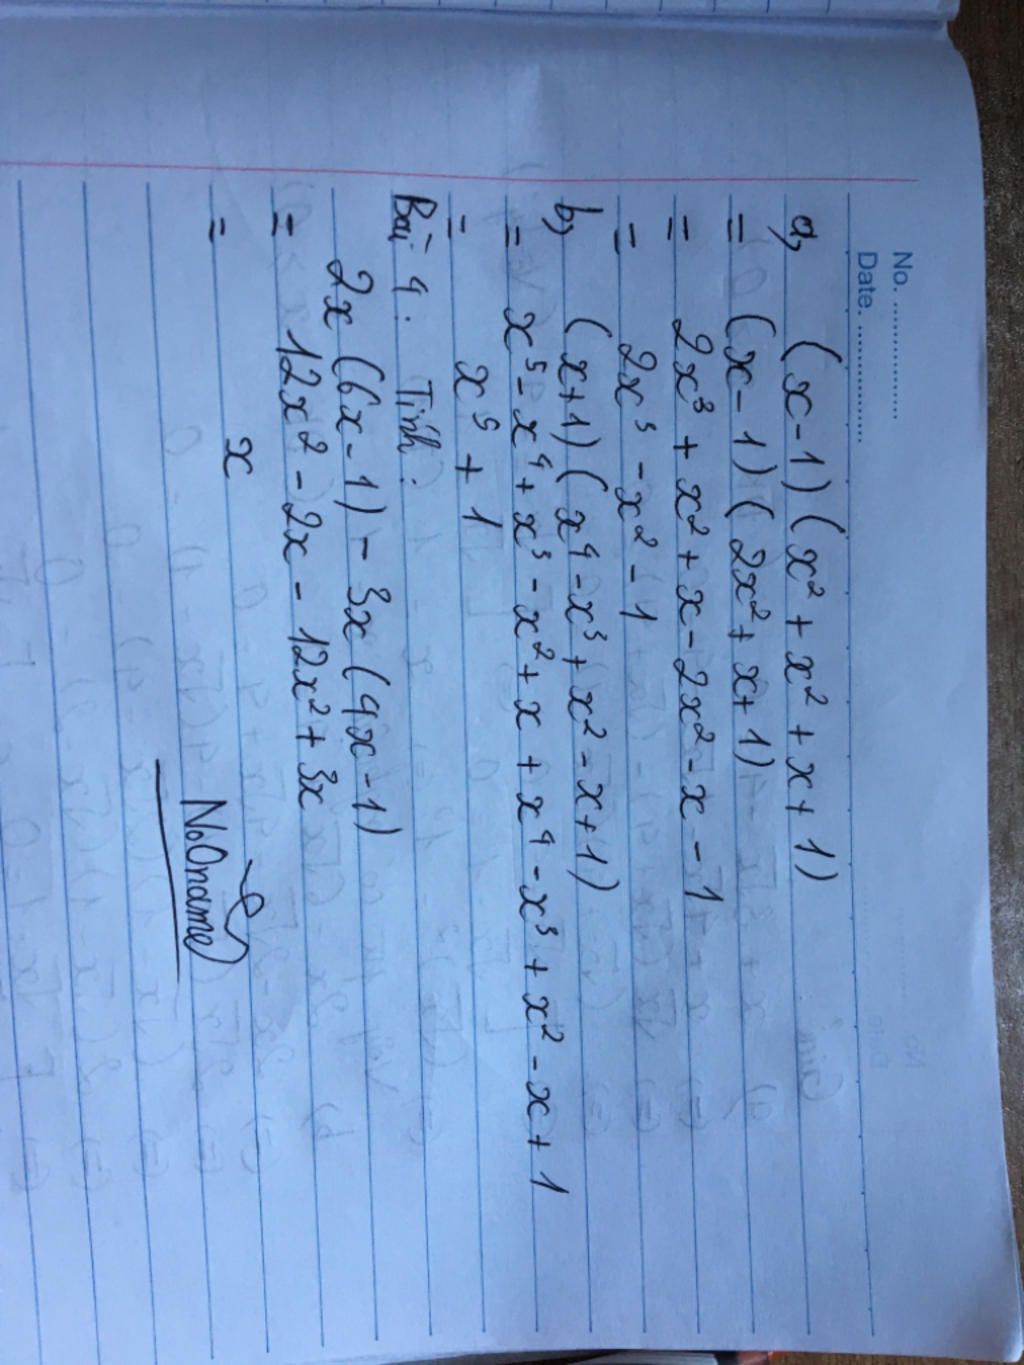 No. ..................
Date. ..................
a, (x-1)(x² + x² + x + 1)
= (x-1)(2x² + x + 1)
= 2x³ + x² + x - 2x² - x - 1
= 2x³ - x² - 1
b, (x+1)(x⁴ - x³ + x² - x + 1)
= x⁵ - x⁴ + x³ - x² + x + x⁴ - x³ + x² - x + 1
= x⁵ + 1
Bài 4: Tính:
2x(6x - 1) - 3x(4x - 1)
= 12x² - 2x - 12x² + 3x
= x
NoOname